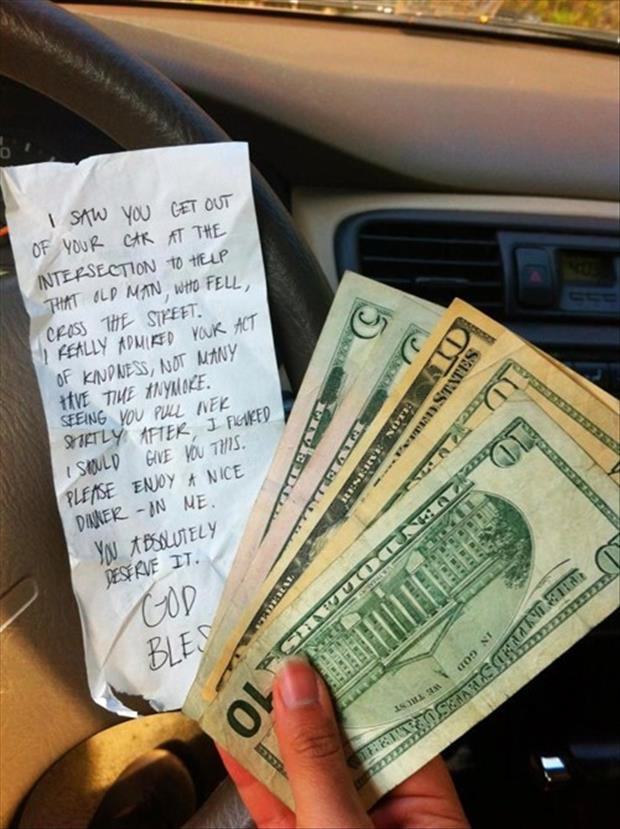 I SAW YOU GET OUT
OF YOUR CAR AT THE
INTERSECTION TO HELP
THAT OLD MAN, WHO FELL,
CROSS THE STREET.
I REALLY ADMIRED YOUR ACT
OF KINDNESS, NOT MANY
HAVE TIME ANYMORE.
SEEING YOU PULL OVER
SHORTLY AFTER, I FIGURED
I SHOULD GIVE YOU THIS.
PLEASE ENJOY A NICE
DINNER - ON ME.
YOU ABSOLUTELY
DESERVE IT.
GOD
BLES
5
5
10
FEDERAL RESERVE NOTE
10
10
THE UNITED STATES OF AMERICA
IN GOD
WE TRUST
10